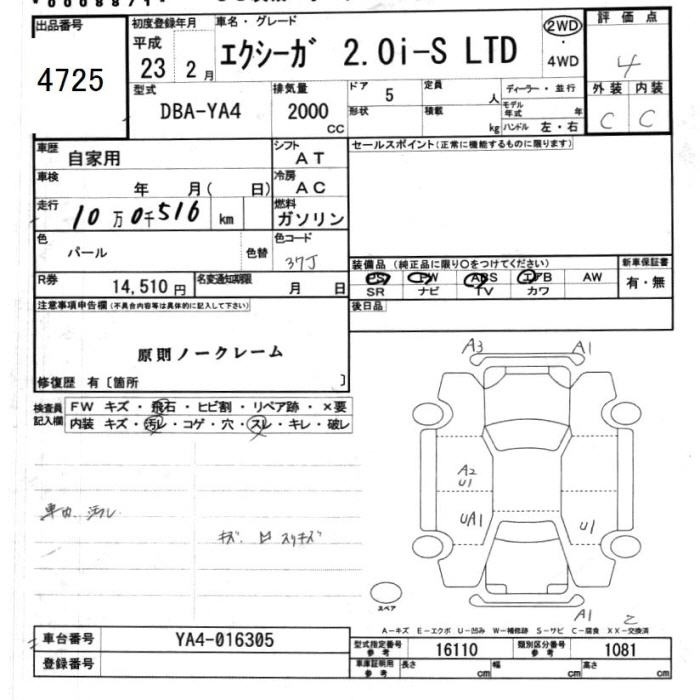 出品番号
4725
初度登録年月
平成
23 2月
車名・グレード
エクシーガ 2.0i-S LTD
2WD
・
4WD
評価点
4
外装 内装
C C
型式
DBA-YA4
排気量
2000
CC
ドア
5
形状
定員
人
積載
kg
ディーラー・並行
モデル年式 年
ハンドル 左・右
車歴
自家用
シフト
AT
車検
年 月( 日)
冷房
AC
走行
10万0千516 km
燃料
ガソリン
色
パール
色替
色コード
37J
R券
14,510円
名変通知期限
月 日
セールスポイント(正常に機能するものに限ります)
装備品 (純正品に限り○をつけてください)
PS PW ABS エアB AW
SR ナビ TV カワ
新車保証書
有・無
後日品
注意事項申告欄(不具合内容等は具体的に記入して下さい)
原則ノークレーム
修復歴 有〔箇所 〕
検査員記入欄
FW キズ・飛石・ヒビ割・リペア跡・×要
内装 キズ・汚レ・コゲ・穴・スレ・キレ・破レ
車内 汚レ
A3 A1
A2
U1
UA1
U1
A1 2
スペア
A-キズ E-エクボ U-凹み W-補修跡 S-サビ C-腐食 XX-交換済
車台番号
YA4-016305
登録番号
型式指定番号
参考
16110
類別区分番号
参考
1081
車庫証明用
参考
長さ cm
幅 cm
高さ cm